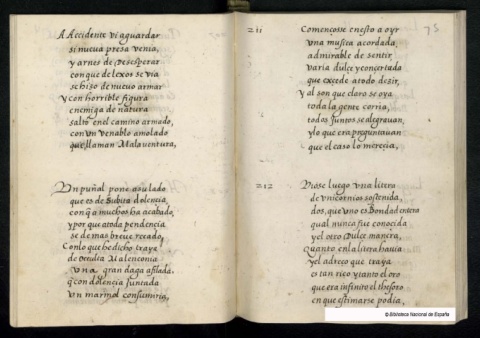 A Accidente vi aguardar
si nueva presa venia,
y arnes de Desesperar
con que de lexos se via
se hizo de nuevo armar
Y con horrible figura
enemiga de natura
salto en el camino armado,
con vn venablo amolado
que llaman Malaventura,
Vn puñal pone a su lado
que es de Subita dolencia,
con q̃ a muchos ha acabado,
y por que a toda pendencia
se de mas breve recado,
Con lo que he dicho traya
de occulta Malenconia
vna gran daga afilada,
q̃ con dolencia juntada
vn marmol consumiria,
211
75
Començosse en esto a oyr
vna musica acordada,
admirable de sentir
varia dulce y concertada
que excede a todo dezir,
Y al son que claro se oya
toda la gente corria,
todos juntos se alegrauan,
y lo que era preguntauan
que el caso lo merecia,
212
Viose luego vna litera
de vnicornios sostenida,
dos, que vno es Bondad entera
qual nunca fue conocida
y el otro Dulce manera,
Quanto en la litera hauia
y el adreço que traya
es tan rico y tanto el oro
que era infinito el thesoro
en que estimarse podia,
© Biblioteca Nacional de España